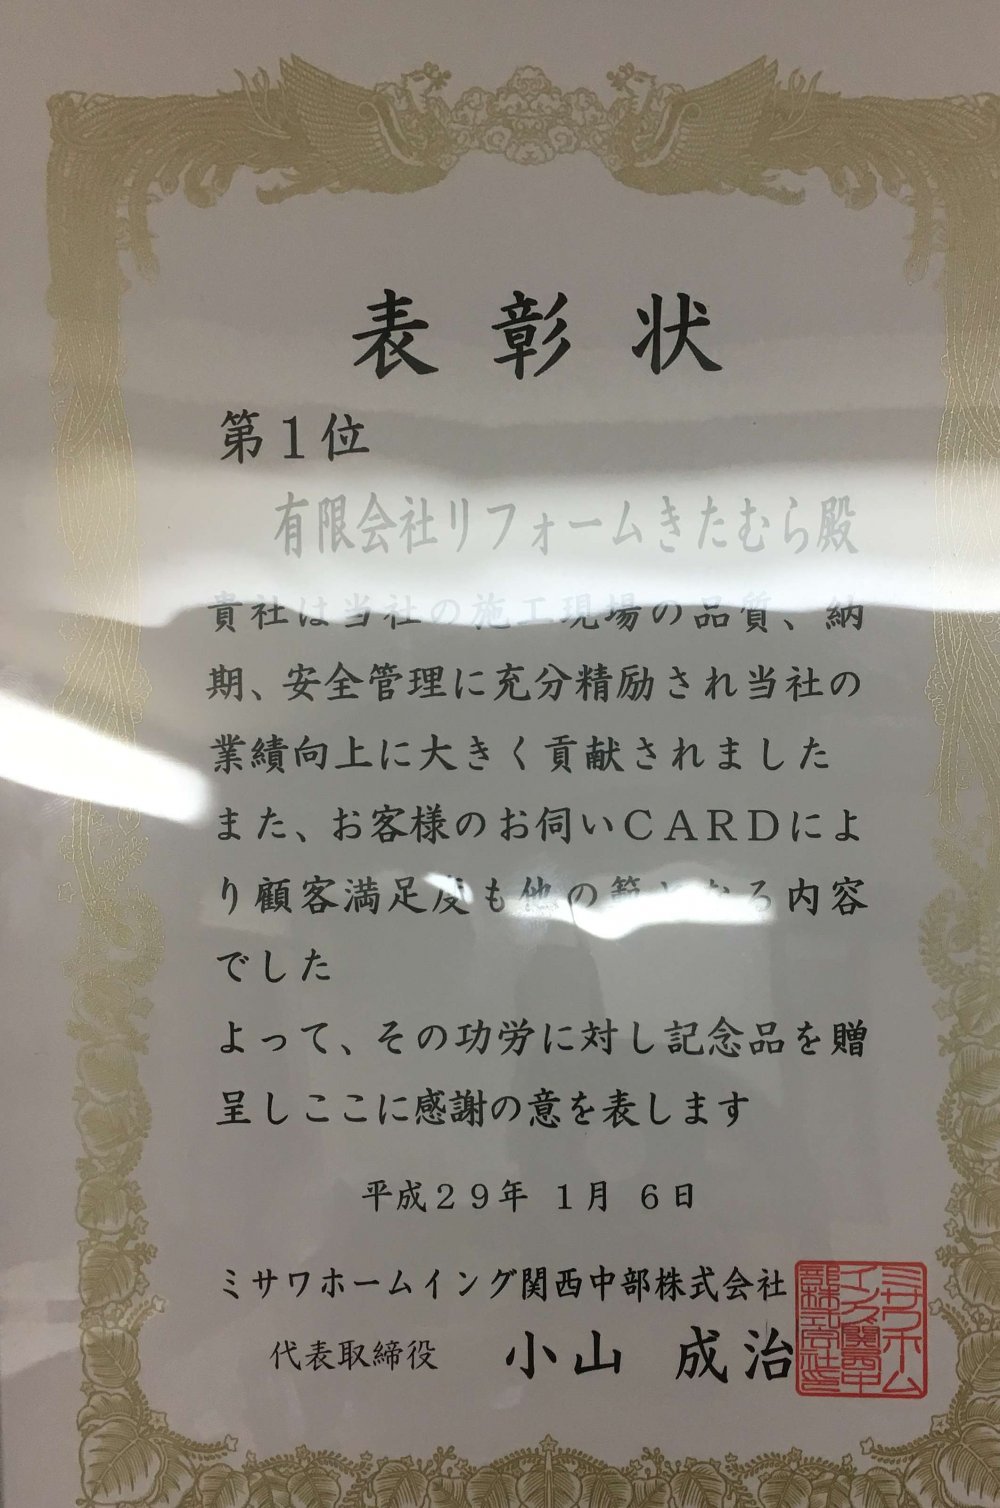 表彰状
第1位
有限会社リフォームきたむら殿
貴社は当社の施工現場の品質、納
期、安全管理に充分精励され当社の
業績向上に大きく貢献されました
また、お客様のお伺いCARDによ
り顧客満足度も他の範となる内容
でした
よって、その功労に対し記念品を贈
呈しここに感謝の意を表します
平成29年 1月 6日
ミサワホームイング関西中部株式会社
代表取締役 小山 成治
ミサワホーム
イング関西中
部株式会社印